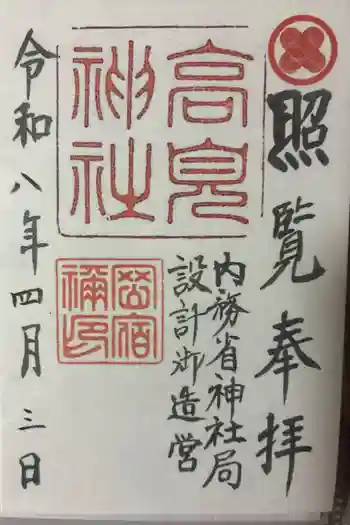 照覧奉拝
高見
神社
内務省神社局
設計御造営
禰宜
令和八年四月三日